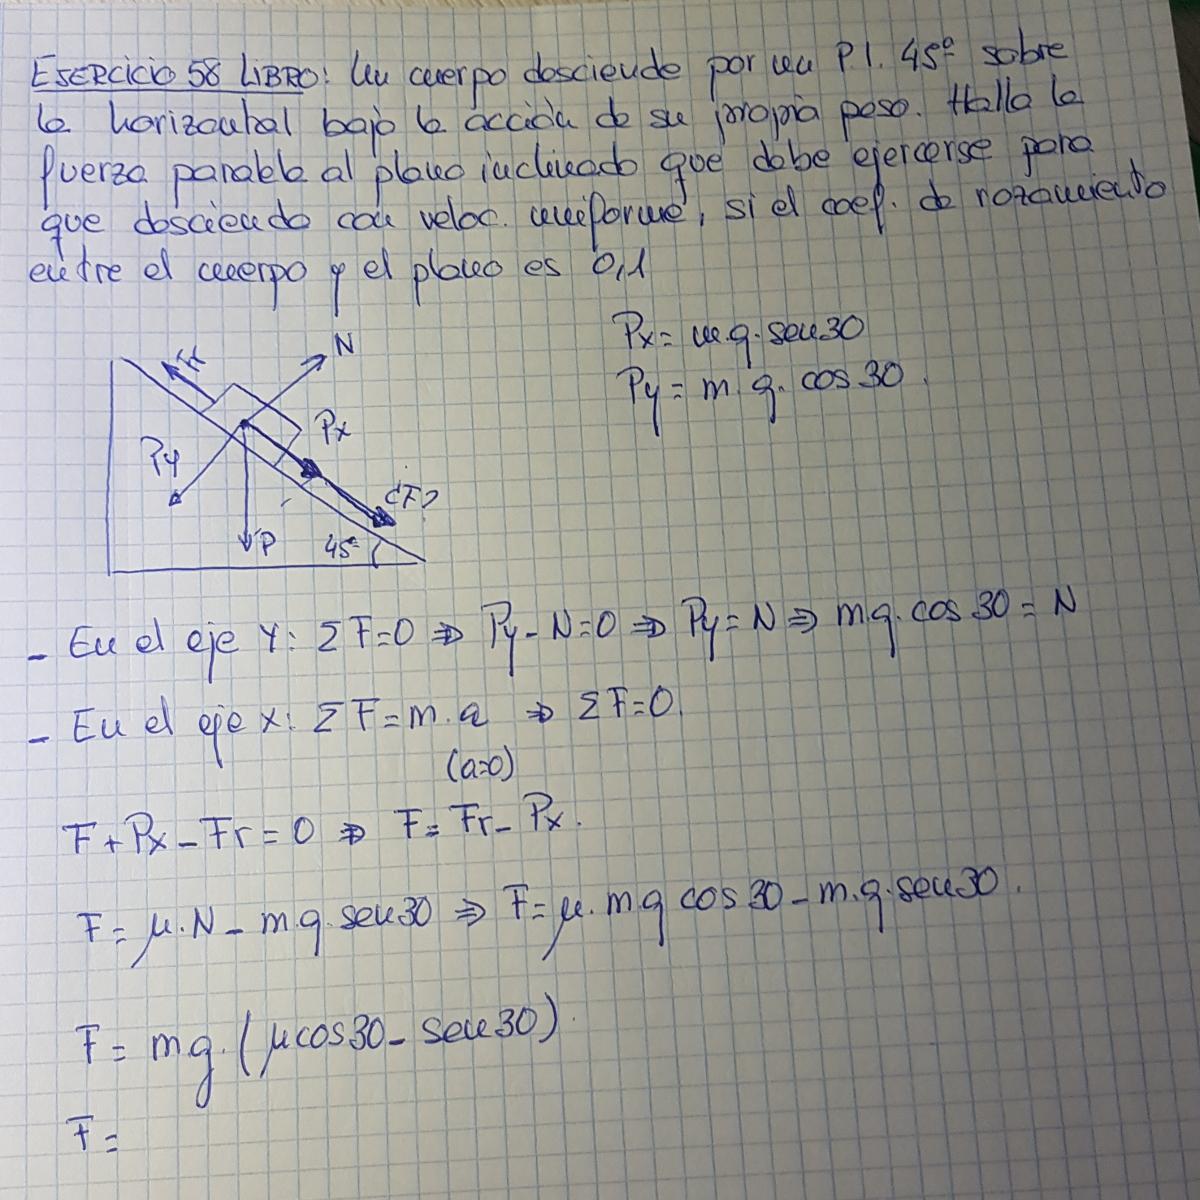 EJERCICIO 58 LIBRO: Un cuerpo desciende por un P I. 45º sobre
la horizontal bajo la acción de su propia peso. Halla la
fuerza paralela al plano inclinado que debe ejercerse para
que descienda con veloc. uniforme, si el coef. de rozamiento
entre el cuerpo y el plano es 0,1
Px = m.g. sen 30
Py = m. g. cos 30.
N
Px
Py
¿F?
P
45º
- En el eje Y: ΣF=0 ⇒ Py - N=0 ⇒ Py = N ⇒ m g. cos 30 = N
- En el eje X: ΣF = m. a ⇒ ΣF=0.
(a=0)
F + Px - Fr = 0 ⇒ F = Fr - Px.
F = μ. N - m g. sen 30 ⇒ F = μ. m g cos 30 - m. g. sen 30.
F = m g. (μ cos 30 - sen 30).
F =